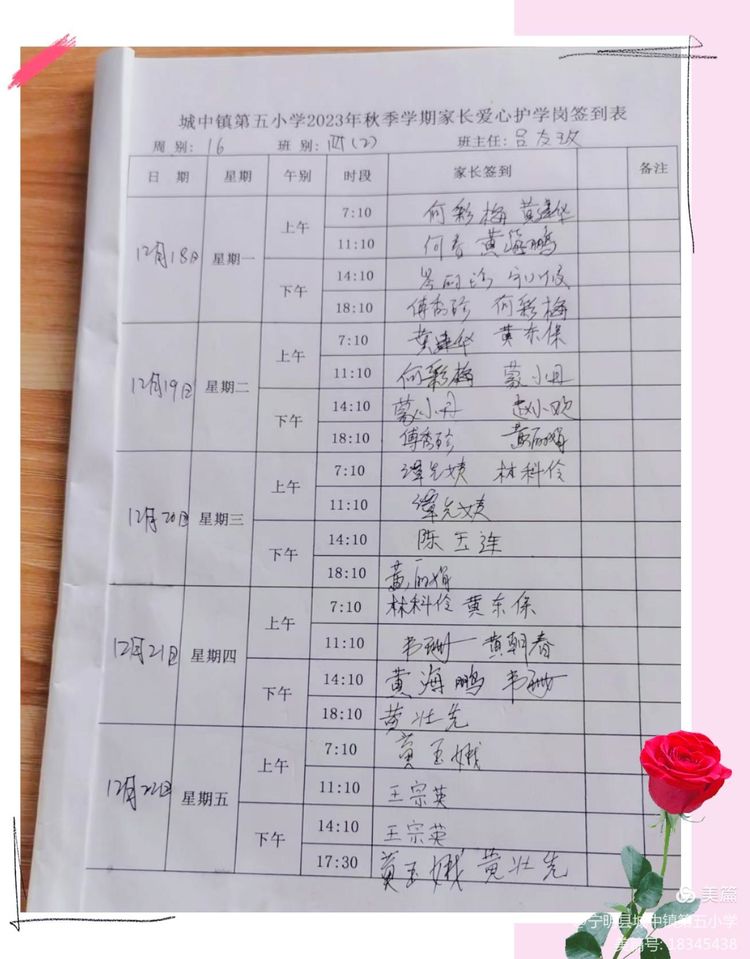 城中镇第五小学2023年秋季学期家长爱心护学岗签到表
周 别: 16 班 别: 四(2) 班主任: 吕友玫
日 期 星期 午别 时段 家长签到 备注
12月18日 星期一 上午 7:10 何彩梅 黄建华
11:10 何春 黄海鹏
下午 14:10
18:10 傅秀珍 何彩梅
12月19日 星期二 上午 7:10 黄建华 黄东保
11:10 何彩梅 蒙小丹
下午 14:10 蒙小丹 赵小欢
18:10 傅秀珍 黄丽娟
12月20日 星期三 上午 7:10 谭先姨 林科伶
11:10 谭先姨
下午 14:10 陈玉连
18:10 黄丽娟
12月21日 星期四 上午 7:10 林科伶 黄东保
11:10 韦珊 黄朝春
下午 14:10 黄海鹏 韦珊
18:10 黄壮先
12月22日 星期五 上午 7:10 黄玉娥
11:10 王宗英
下午 14:10 王宗英
17:30 黄玉娥 黄壮先
美篇
@宁明县城中镇第五小学
美篇号: 18345438